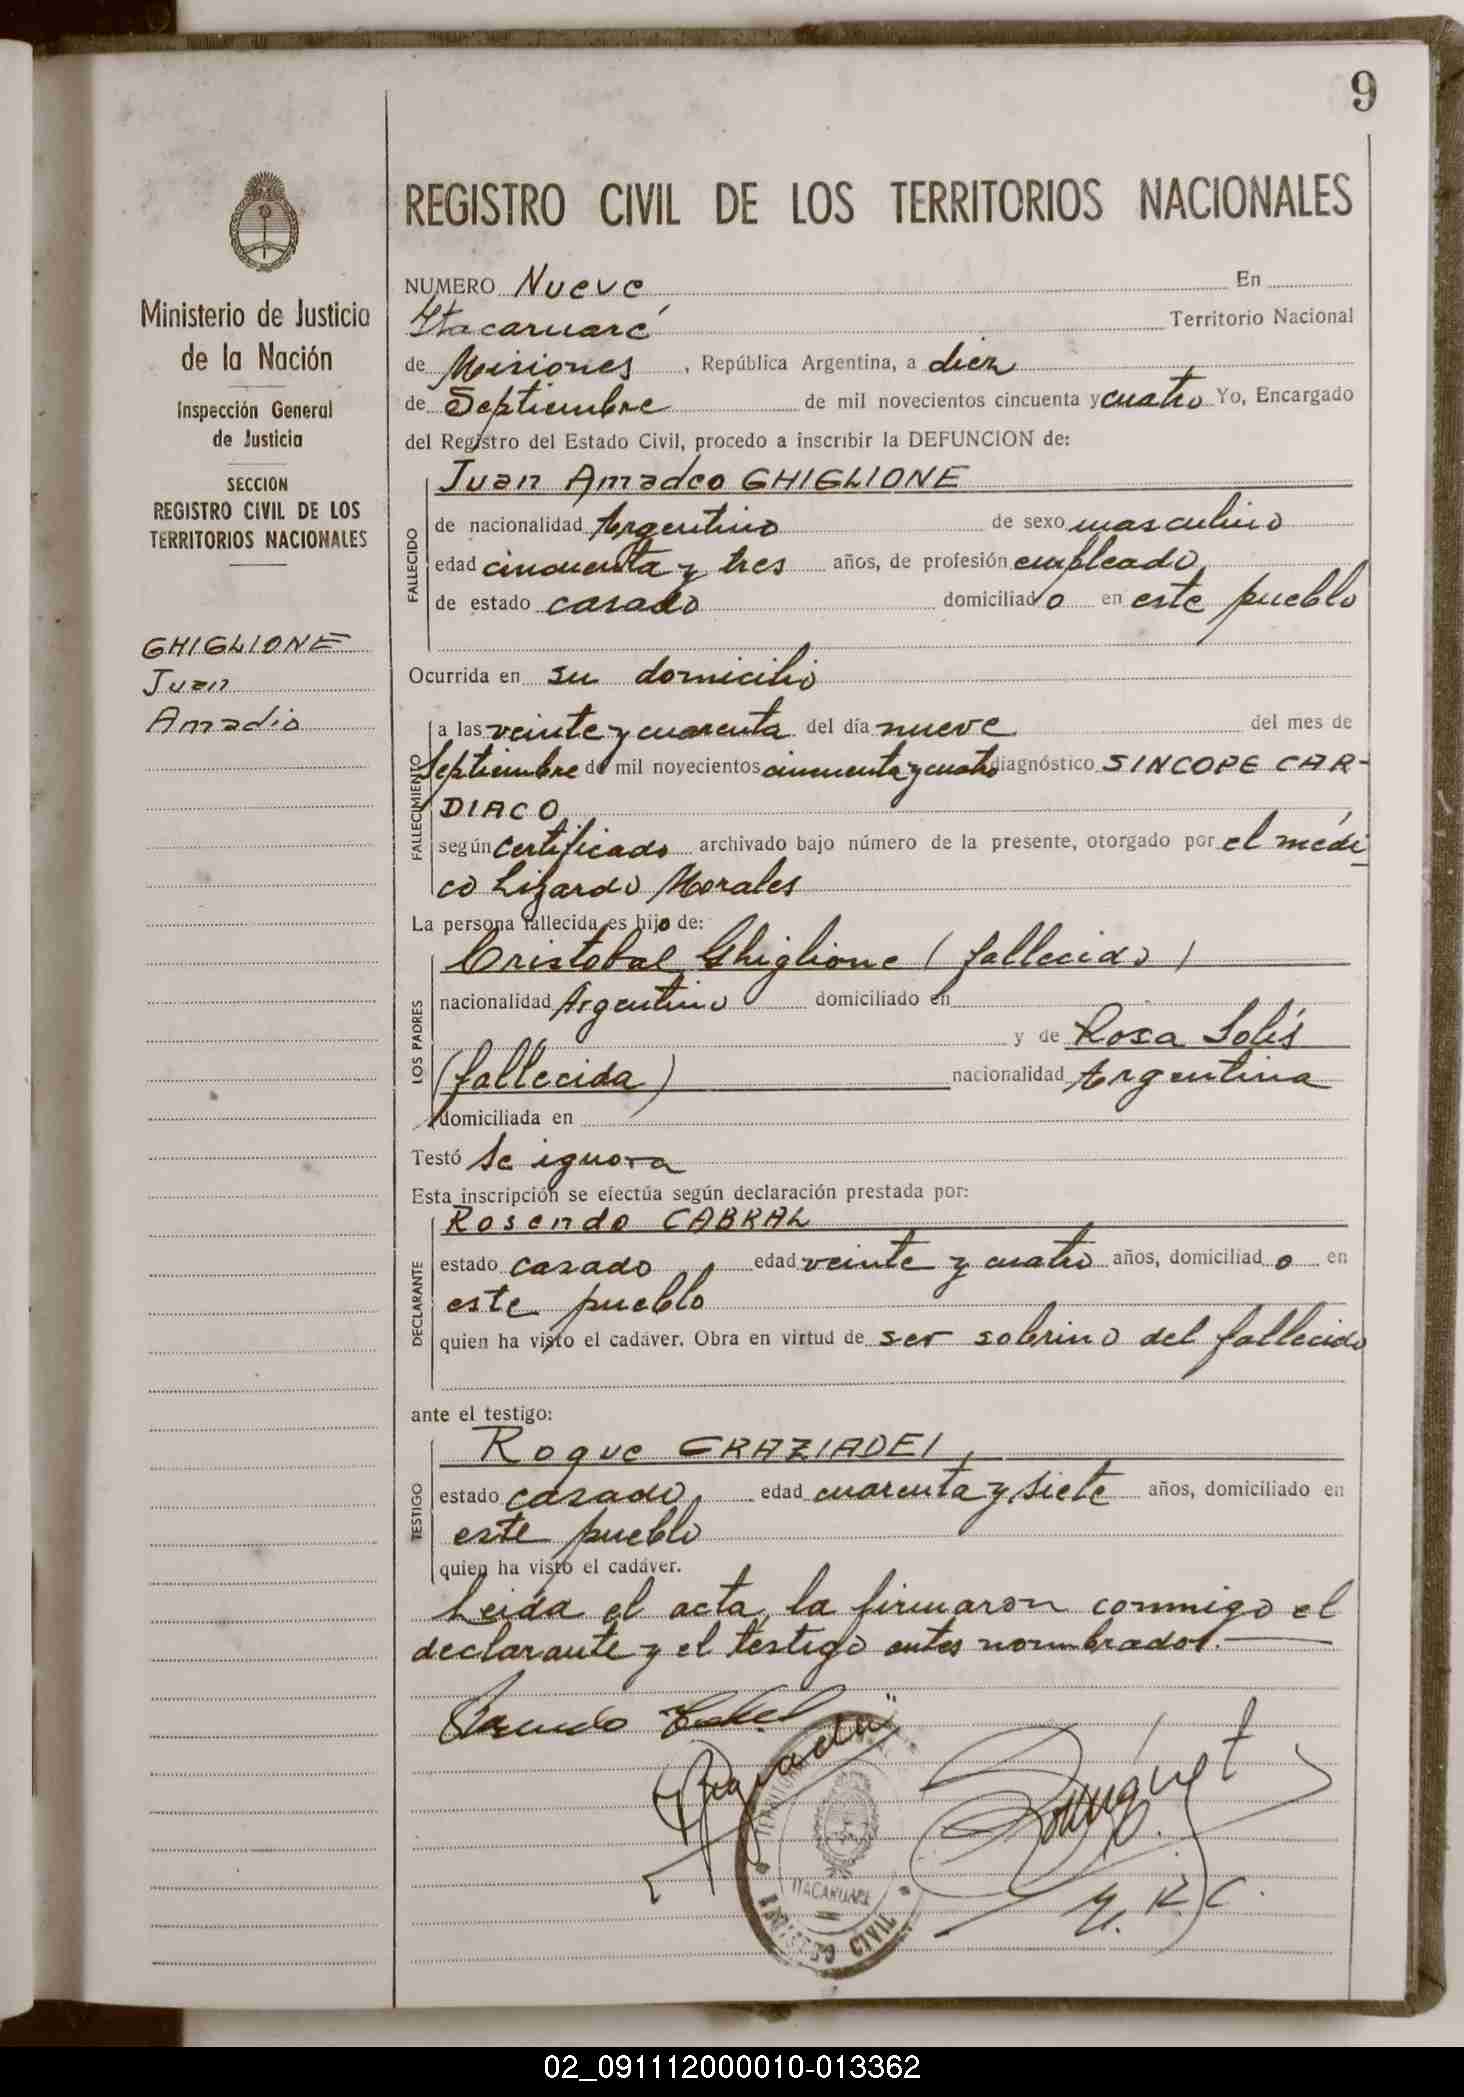 9
REGISTRO CIVIL DE LOS TERRITORIOS NACIONALES
Ministerio de Justicia
de la Nación
Inspección General
de Justicia
SECCION
REGISTRO CIVIL DE LOS
TERRITORIOS NACIONALES
GHIGLIONE
Juan
Amadio
NUMERO Nueve En
Itacaruaré Territorio Nacional
de Misiones , República Argentina, a diez
de Septiembre de mil novecientos cincuenta y cuatro Yo, Encargado
del Registro del Estado Civil, procedo a inscribir la DEFUNCION de:
FALLECIDO
Juan Amadeo GHIGLIONE
de nacionalidad Argentino de sexo masculino
edad cincuenta y tres años, de profesión empleado
de estado casado domiciliado en este pueblo
Ocurrida en su domicilio
FALLECIMIENTO
a las veinte y cuarenta del día nueve del mes de
Septiembre de mil novecientos cincuenta y cuatro diagnóstico SINCOPE CAR-
DIACO
según certificado archivado bajo número de la presente, otorgado por el médi
co Lizardo Morales
La persona fallecida es hijo de:
LOS PADRES
Cristobal Ghiglione (fallecido)
nacionalidad Argentino domiciliado en
y de Rosa Solís
(fallecida) nacionalidad Argentina
domiciliada en
Testó se ignora
Esta inscripción se efectúa según declaración prestada por:
DECLARANTE
Rosendo CABRAL
estado casado edad veinte y cuatro años, domiciliado en
este pueblo
quien ha visto el cadáver. Obra en virtud de ser sobrino del fallecido
ante el testigo:
TESTIGO
Roque GRAZIADEI,
estado casado, edad cuarenta y siete años, domiciliado en
este pueblo
quien ha visto el cadáver.
Leída el acta, la firmaron conmigo el
declarante y el testigo antes nombrados.
ITACARUARE
REGISTRO CIVIL
02_091112000010-013362